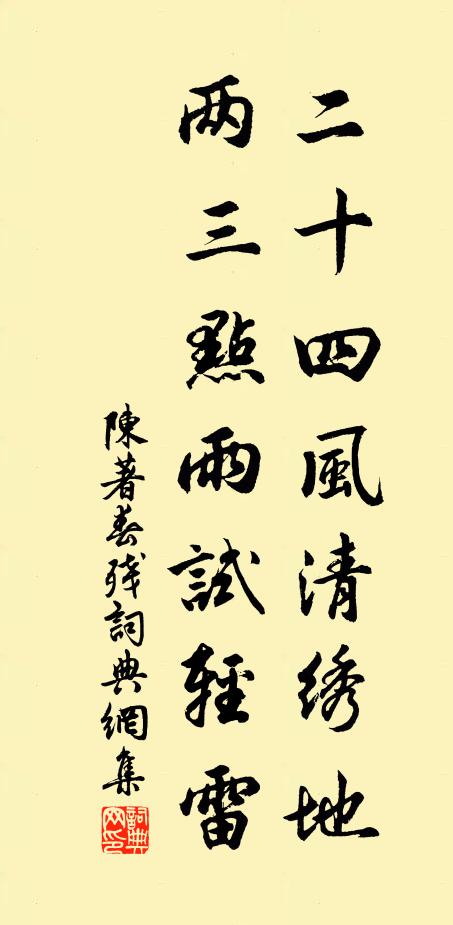 二十四風清绣地
两三點雨試輕雷
陳著春残詞典網集
詞典网印